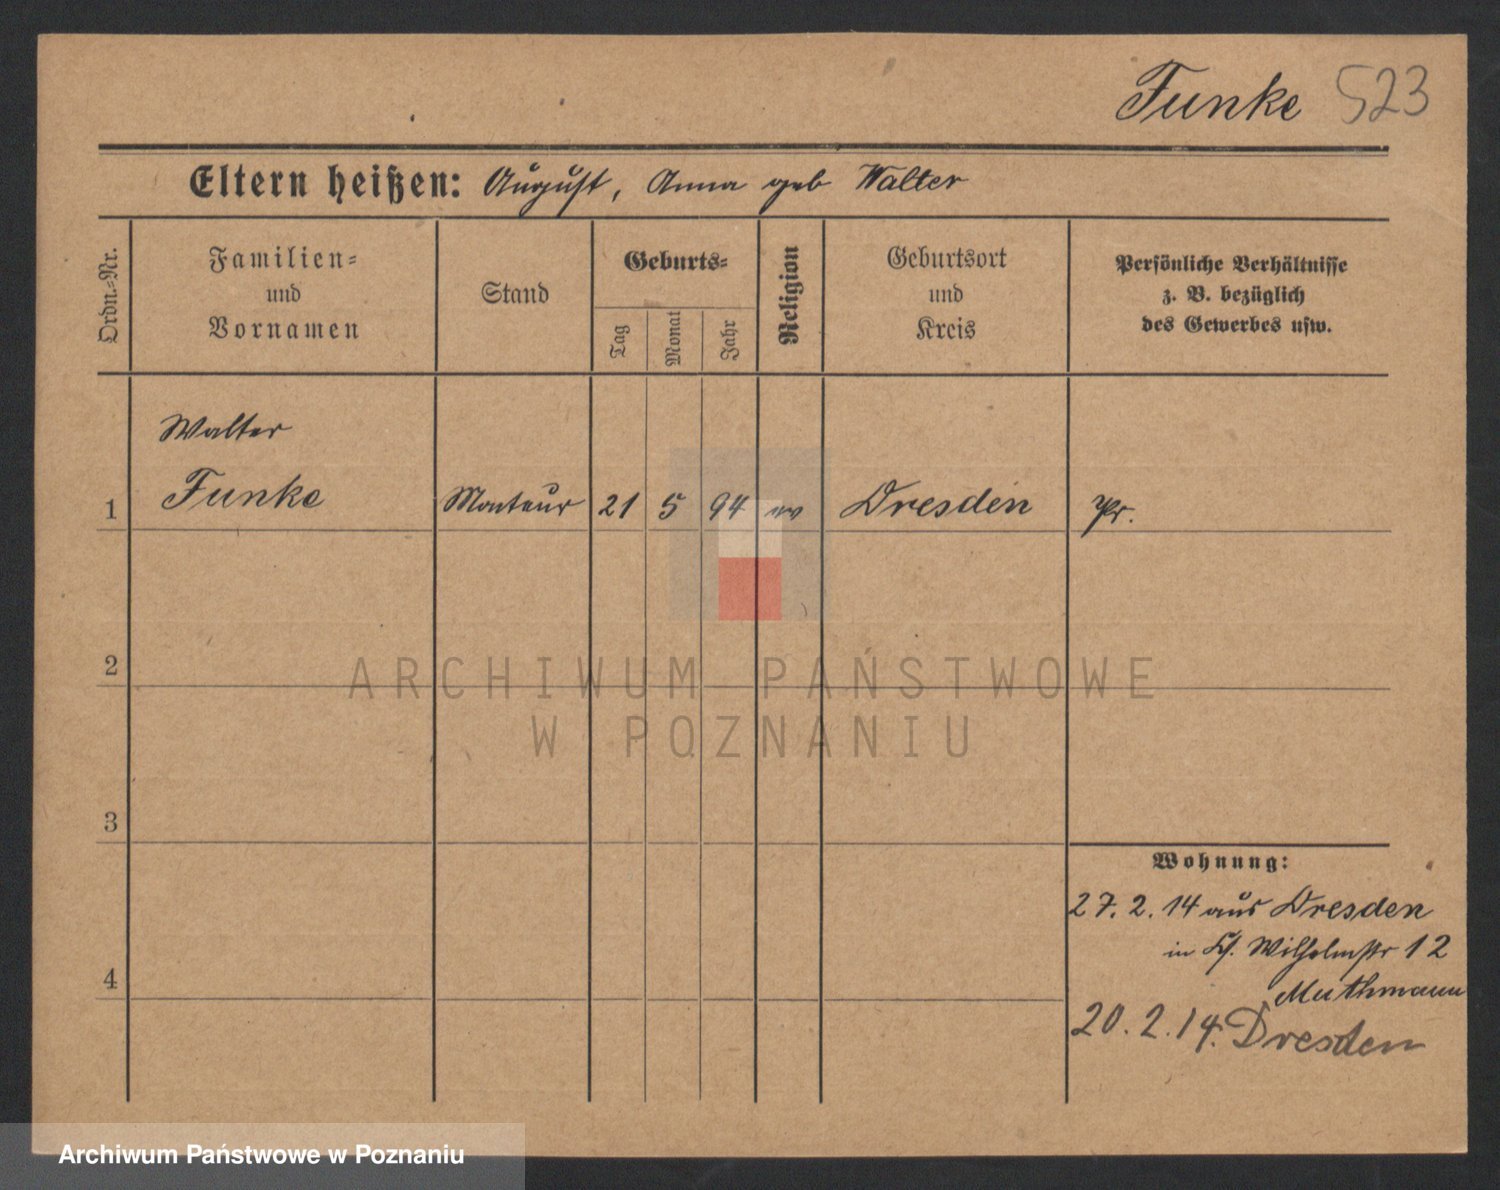 Funke 523
Eltern heißen: August, Anna geb Walter
Ordn.-Nr.
Familien-
und
Vornamen
Stand
Geburts-
Tag
Monat
Jahr
Religion
Geburtsort
und
Kreis
Persönliche Verhältnisse
z. B. bezüglich
des Gewerbes usw.
Walter
Funke
1 Monteur 21 5 94 ev Dresden Pr.
2
ARCHIWUM PAŃSTWOWE
W POZNANIU
3
Wohnung:
27. 2. 14 aus Dresden
in Wilhelmstr 12
4
Muthmann
20. 2. 14. Dresden
Archiwum Państwowe w Poznaniu